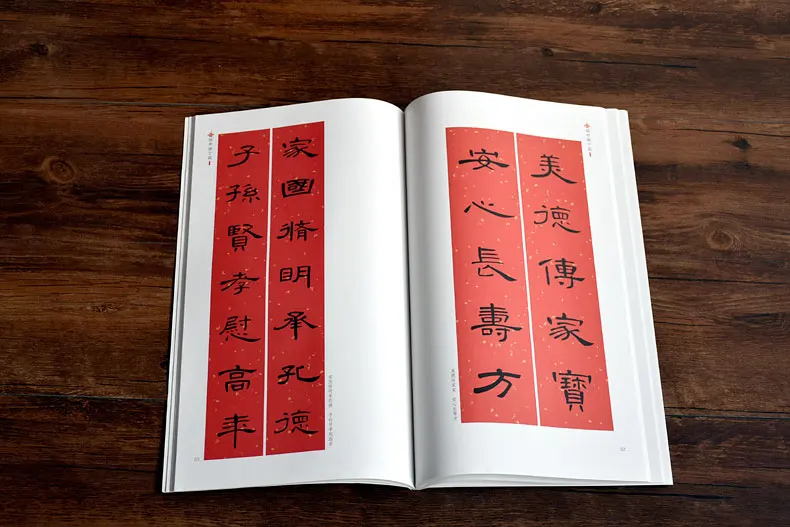 美德傳家寶
安心長壽方
家國脩明承孔德
子孫賢孝慰高年